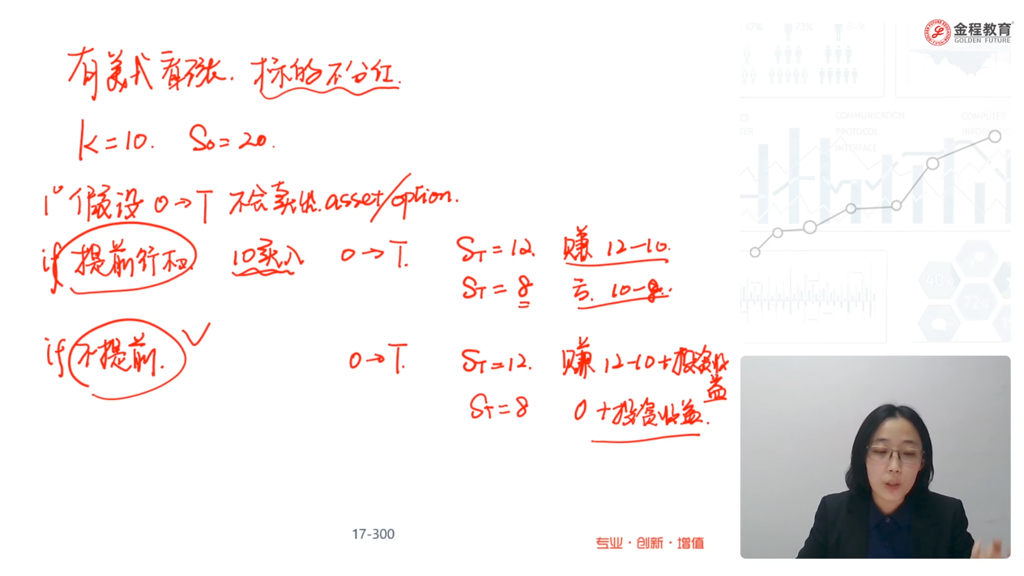 金程教育
GOLDEN·FUTURE
有美式看涨. 标的不分红.
K=10. S₀=20.
1° 假设 0→T 不会卖出 asset/option.
if 提前行权 10买入 0→T. S_T=12. 赚 12-10.
S_T=8 亏. 10-8.
if 不提前. ✓ 0→T. S_T=12. 赚 12-10+投资收益
S_T=8 0+投资收益.
17-300
专业·创新·增值
COMMUNICATION
PROTOCOL
INTERFACE